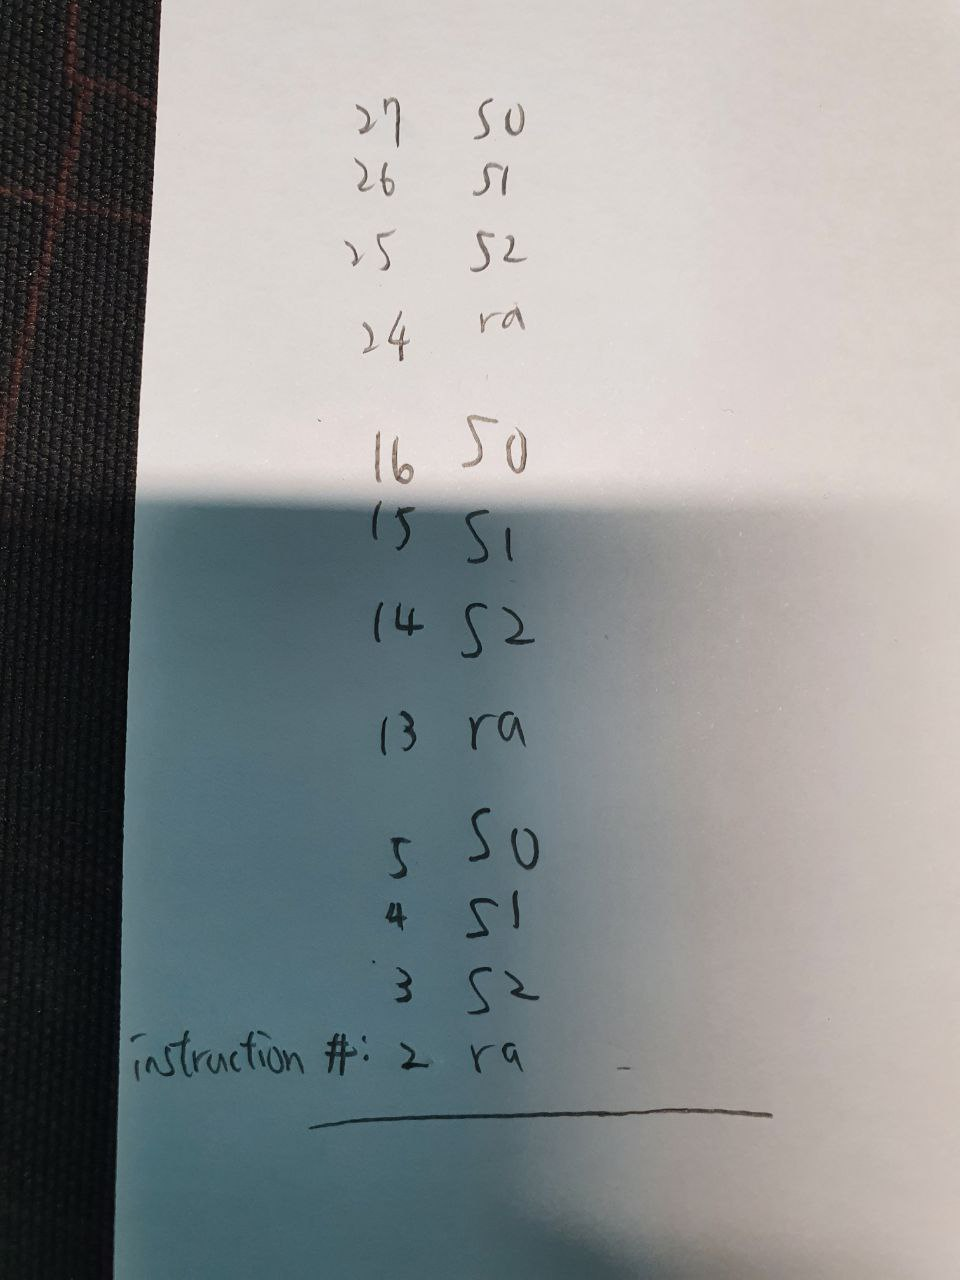 27 S0
26 S1
25 S2
24 ra
16 S0
15 S1
14 S2
13 ra
5 S0
4 S1
3 S2
instruction #: 2 ra